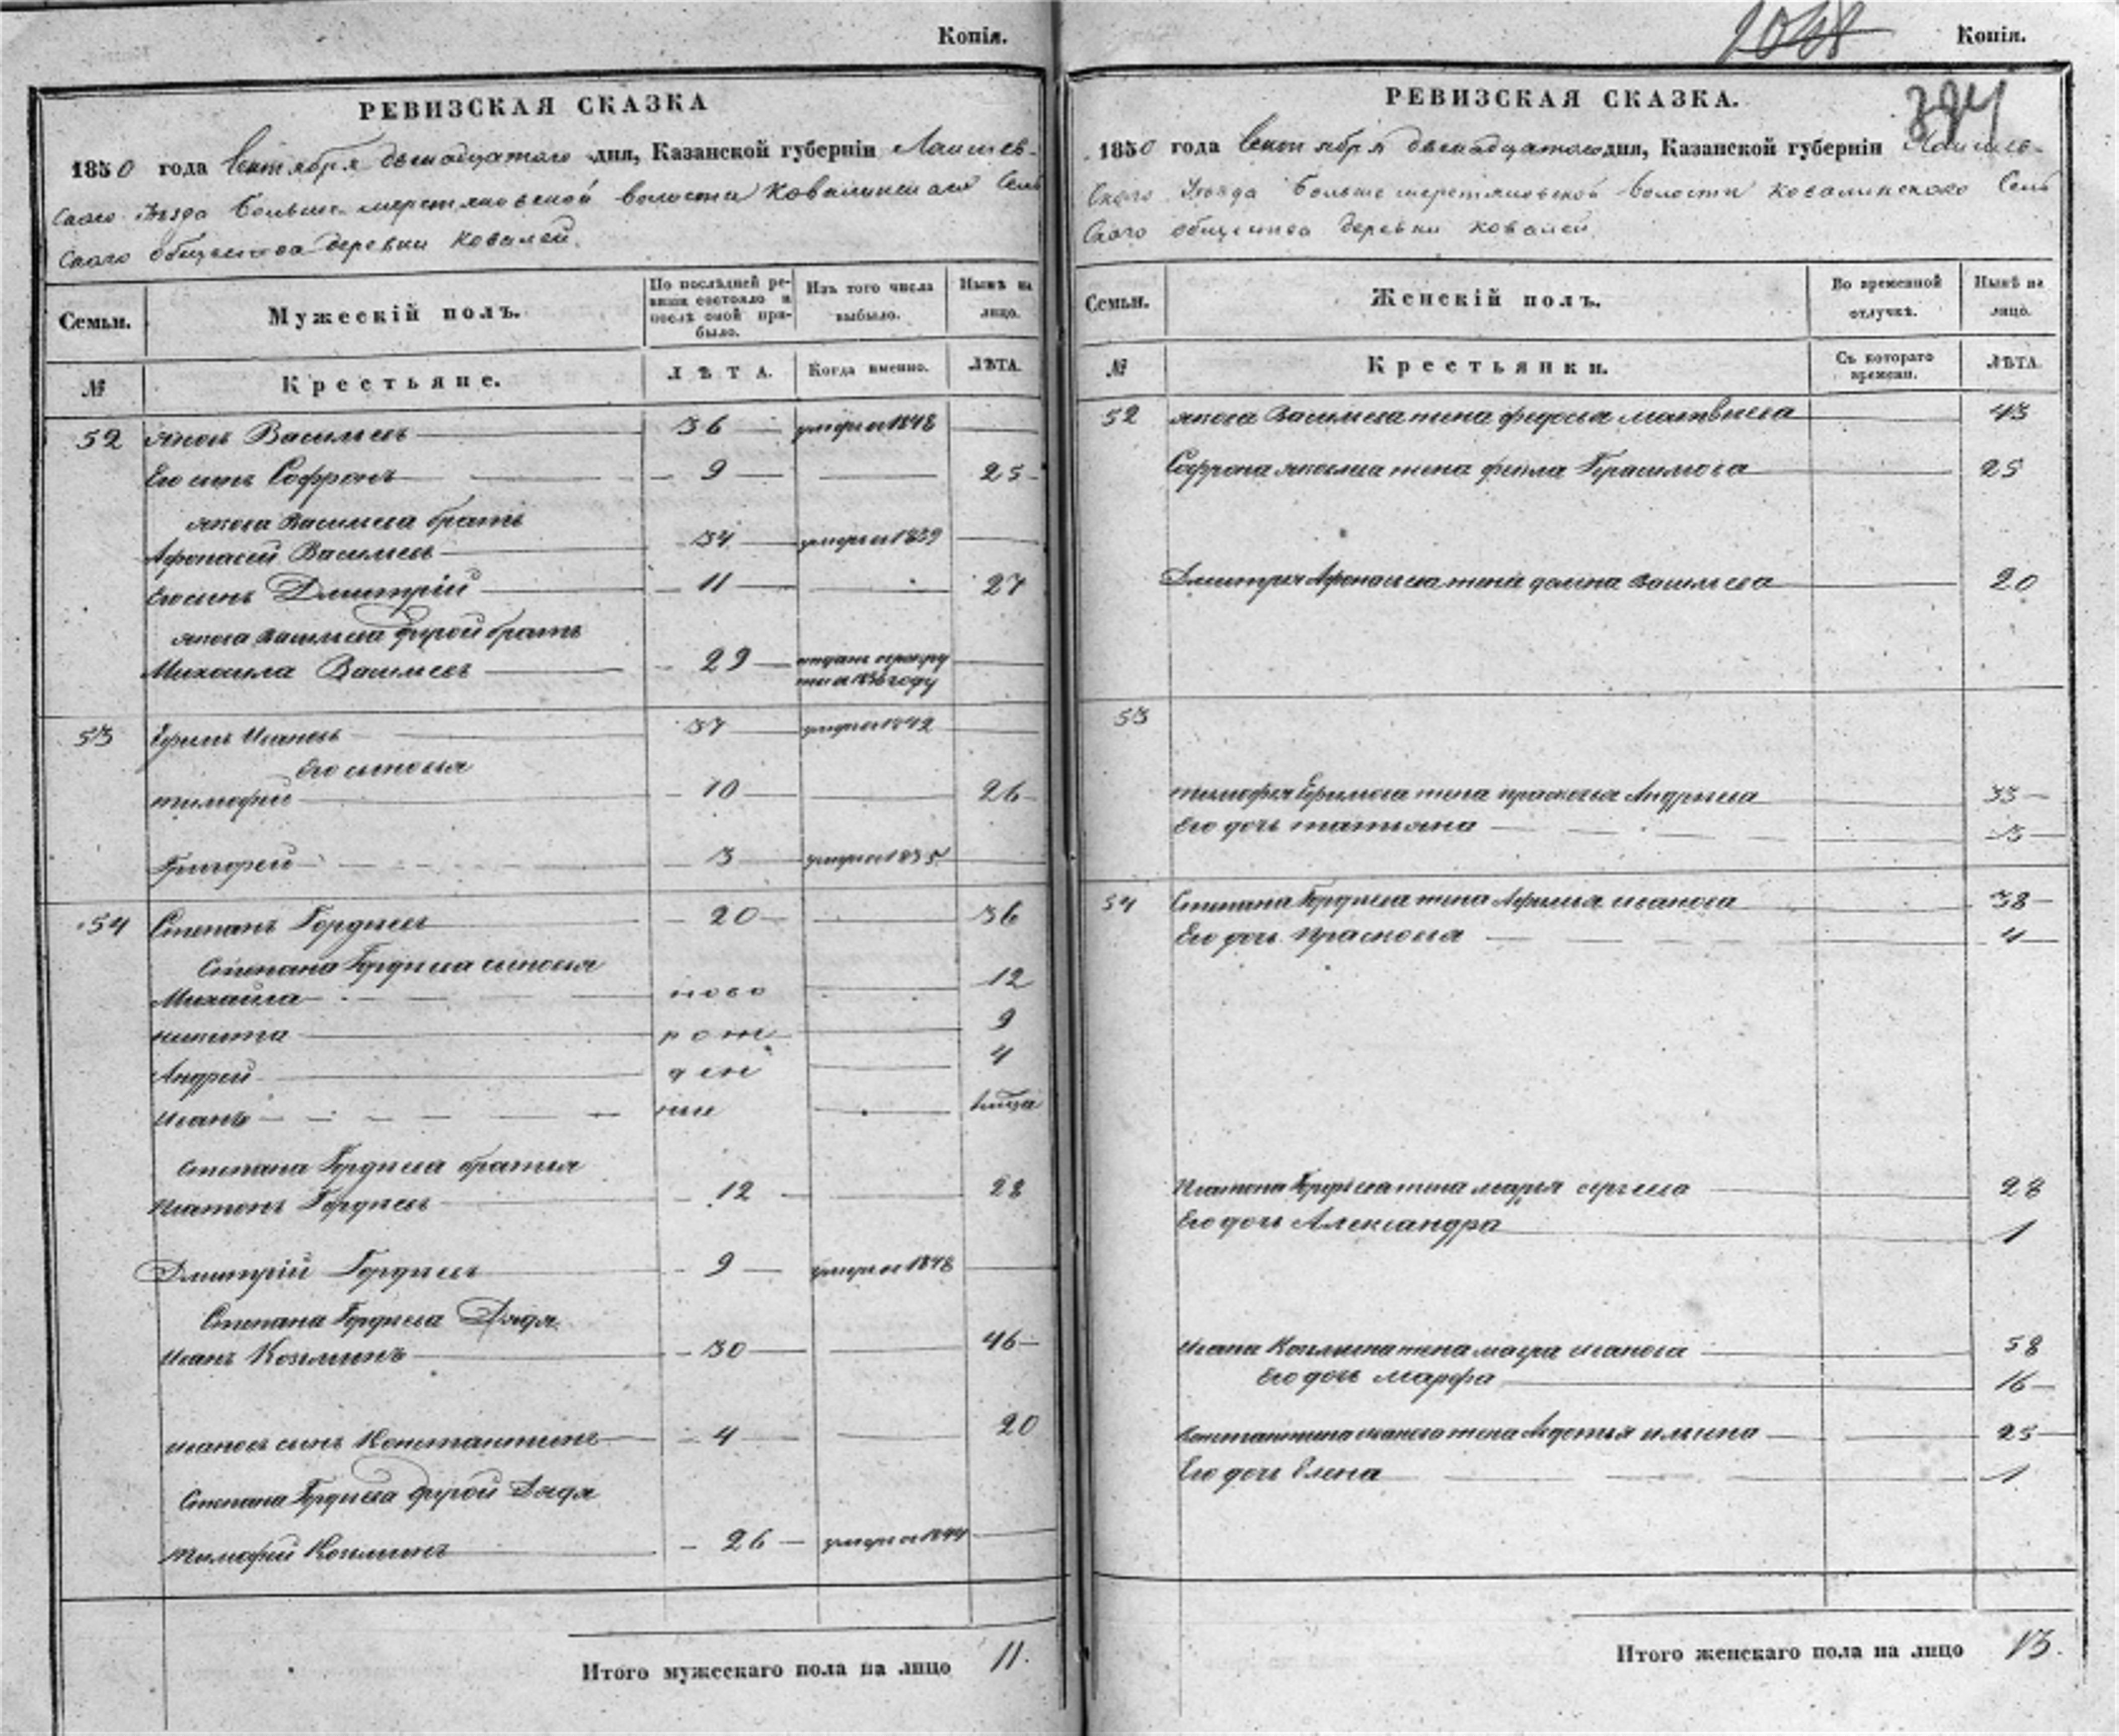 Копія.
РЕВИЗСКАЯ СКАЗКА
1850 года Сентября двенадцатаго дня, Казанской губерніи Лаишев-
скаго уѣзда больше-меретяковской волости Ковалинскаго Сель
скаго общества деревни Ковалей.
Семьи.
Мужескій полъ.
По послѣдней ре-
визіи состояло и
послѣ оной при-
было.
Изъ того числа
выбыло.
Нынѣ на
лицо.
№
Крестьяне.
ЛѢТА.
Когда именно.
ЛѢТА.
52 яковъ Васильевъ 36 умеръ в 1848
Его сынъ Софронъ 9 25
якова Васильева братъ
Афонасей Васильевъ 34 умеръ в 1839
Его сынъ Дмитрій 11 27
якова васильева другой братъ
Михаила Васильевъ 29 отданъ в рекру
ты в 1836 году
53 Ефимъ Ивановъ 37 умеръ в 1842
Его сыновья
тимофей 10 26
Григорей 3 умеръ в 1835
54 Степанъ Гордеевъ 20 36
Степана Гордеева сыновья
Михайла ново 12
никита рож 9
Андрей ден 4
иванъ ные
Степана Гордеева братья
платонъ Гордеевъ 12 28
Дмитрій Гордеевъ 9 умеръ в 1848
Степана Гордеева Дядя
иванъ Козминъ 30 46
ивановъ сынъ Константинъ 4 20
Степана Гордеева другой Дядя
тимофей Козминъ 26 умеръ в 1844
Итого мужескаго пола на лицо 11.
Копія.
РЕВИЗСКАЯ СКАЗКА.
1850 года Сентября двенадцатаго дня, Казанской губерніи Лаишев-
скаго Уѣзда Больше меретяковской волости Ковалинскаго Сель
скаго общества деревни Ковалей
Семьи.
Женскій полъ.
Во временной
отлучкѣ.
Нынѣ на
лицо.
№
Крестьянки.
Съ котораго
времени.
ЛѢТА.
52 якова Васильева жена федосья матвеева 43
Софрона яковлева жена фекла Герасимова 25
Дмитрея Афонасьева жена домна васильева 20
53
тимофея Ефимова жена прасковья Андреева 33
Его дочь татьяна 3
54 Степана Гордеева жена Афимья иванова 38
Его дочь прасковья 4
платона Гордеева жена марья сергеева 28
Его дочь Александра 1
ивана Козмина жена мавра иванова 58
Его дочь марфа 16
Константина иванова жена Авдотья ильина 25
Его дочь Елена 1
Итого женскаго пола на лицо 13.